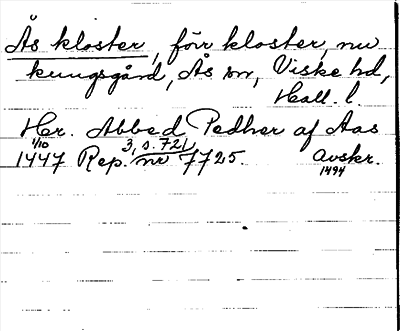 Ås kloster, förr kloster, nu
kungsgård, Ås sn, Viske hd,
Hall. l.
Her. Abbed Pedher af Aas
1/10 3, s. 721,
1447 Rep. nr 7725. Avskr.
1494